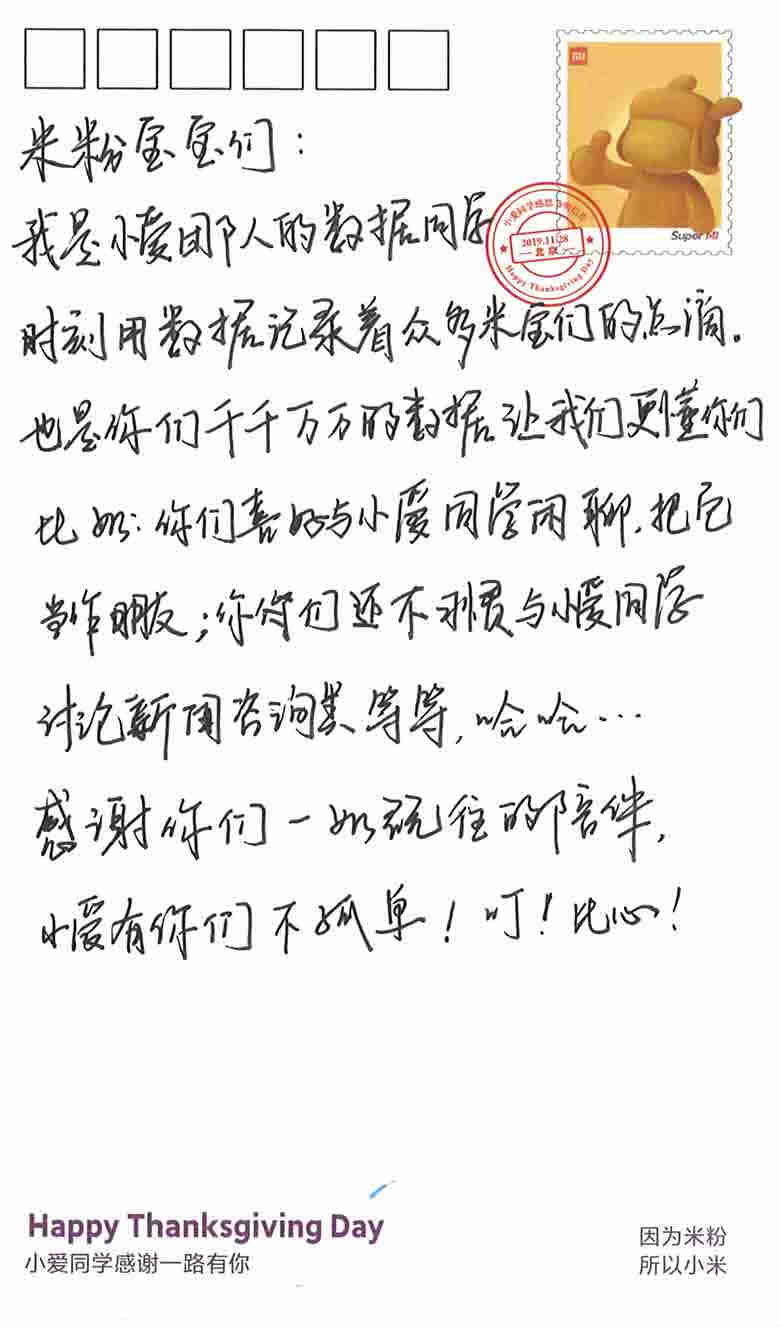 MI
Super MI
小爱同学感恩节明信片
2019.11.28
北京
Happy Thanksgiving Day
米粉宝宝们:
我是小爱团队人的数据同学
时刻用数据记录着众多米宝们的点滴。
也是你们千千万万的数据让我们更懂你们
比如:你们喜好与小爱同学闲聊,把它
当作朋友;你们还不习惯与小爱同学
讨论新闻咨询类等等,哈哈…
感谢你们一如既往的陪伴,
小爱有你们不孤单!叮!比心!
Happy Thanksgiving Day
小爱同学感谢一路有你
因为米粉
所以小米